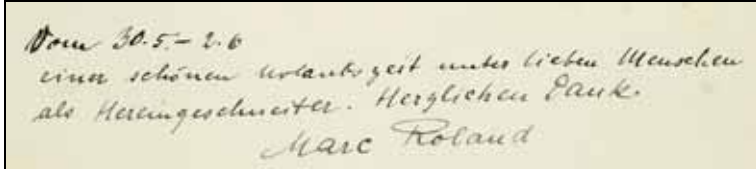 Vom 30.5.- 2.6
einer schönen Urlaubszeit unter lieben Menschen
als Hereingeschneiter. Herzlichen Dank.
Marc Roland